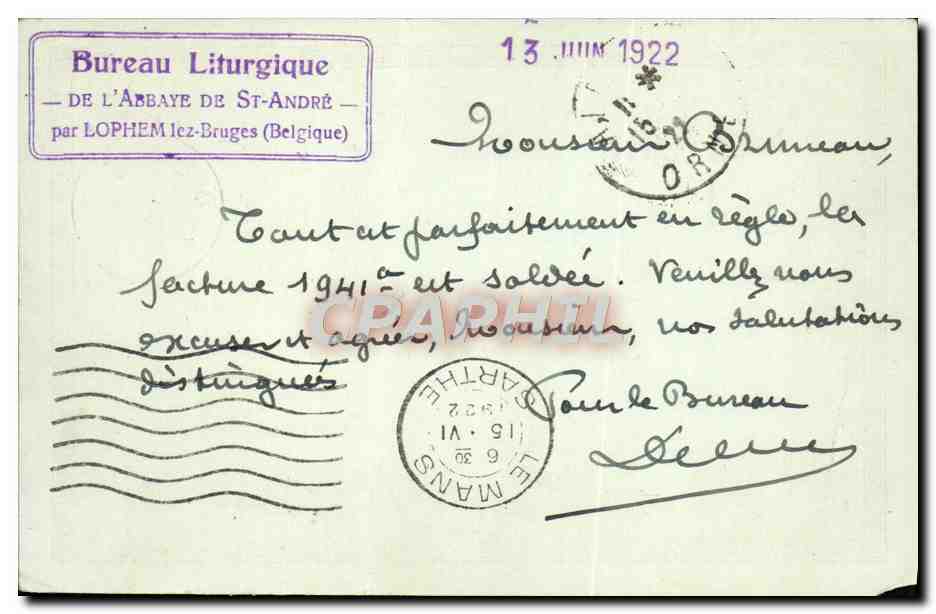 Bureau Liturgique
— DE L'ABBAYE DE ST-ANDRÉ —
par LOPHEM lez-Bruges (Belgique)
13 JUIN 1922
15
ORNE
Monsieur Bruneau,
Tout est parfaitement en règle, la
facture 1941ª est soldée. Veuillez nous
excuser et agréer, Monsieur, nos salutations
distinguées
Pour le Bureau
CPARHIL
LE MANS
6 30
15 • VI
1922
SARTHE